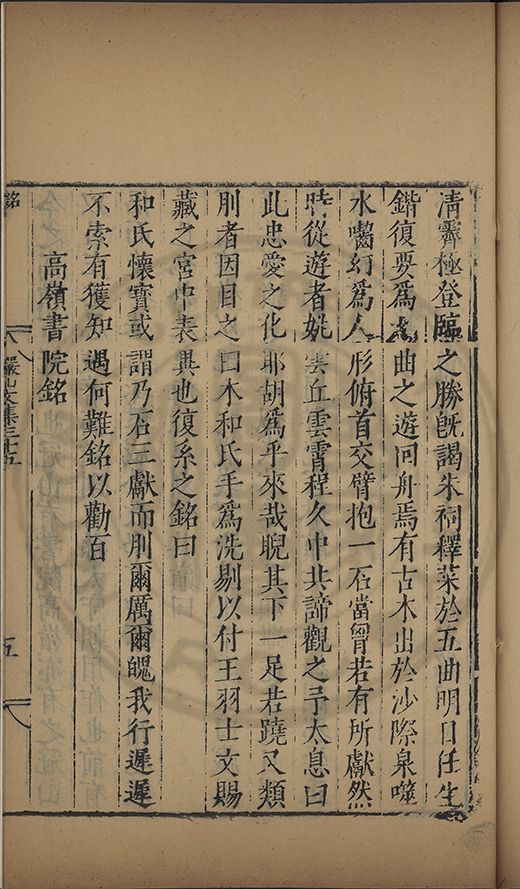 清霽極登臨之勝旣謁朱祠釋菜於五曲明日任生
鍇復要為九曲之遊回舟焉有古木出於沙際泉噬
水囓幻為人形俯首交臂抱一石當曾若有所獻然
時從遊者姚雲丘雲霄程久中共諦觀之予太息曰
此忠愛之化耶胡為乎來哉睨其下一足若蹺又類
刖者因目之曰木和氏手為洗剔以付王羽士文賜
藏之宮中表異也復系之銘曰
和氏懷寶或謂乃石三獻而刖爾厲爾餽我行遲遲
不索有獲知遇何難銘以勸百
高嶺書院銘
銘
儼山文集三十五
五